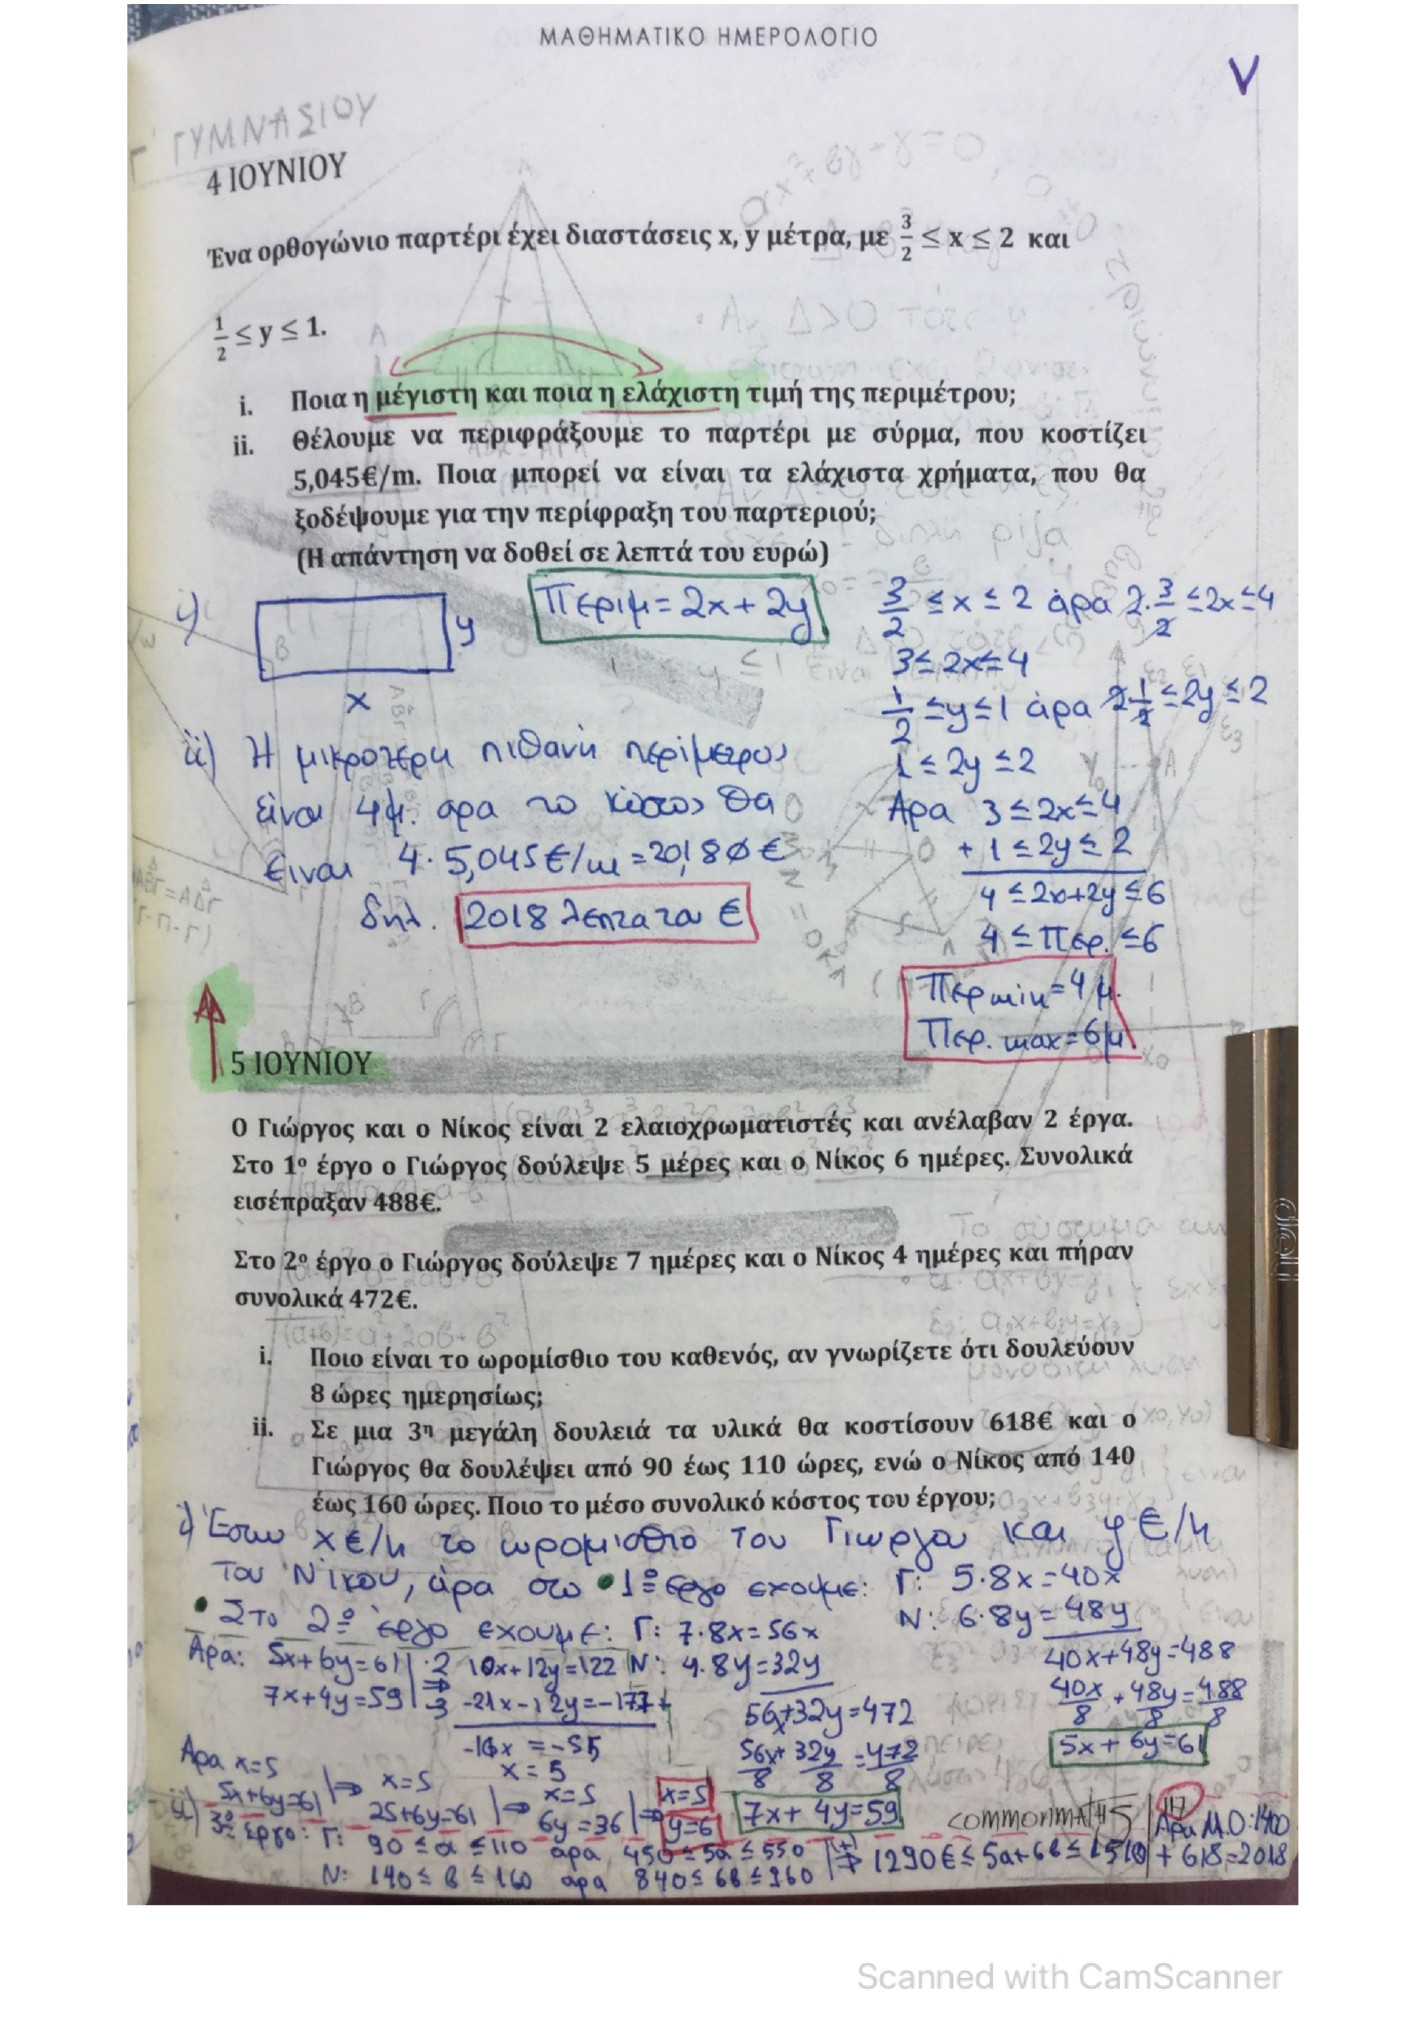 ΜΑΘΗΜΑΤΙΚΟ ΗΜΕΡΟΛΟΓΙΟ
V
Γ' ΓΥΜΝΑΣΙΟΥ
4 ΙΟΥΝΙΟΥ
Ένα ορθογώνιο παρτέρι έχει διαστάσεις x, y μέτρα, με 3/2 ≤ x ≤ 2 και
1/2 ≤ y ≤ 1.
i. Ποια η μέγιστη και ποια η ελάχιστη τιμή της περιμέτρου;
ii. Θέλουμε να περιφράξουμε το παρτέρι με σύρμα, που κοστίζει
5,045€/m. Ποια μπορεί να είναι τα ελάχιστα χρήματα, που θα
ξοδέψουμε για την περίφραξη του παρτεριού;
(Η απάντηση να δοθεί σε λεπτά του ευρώ)
i) y
x
Περιμ = 2x + 2y
3/2 ≤ x ≤ 2 άρα 2·3/2 ≤ 2x ≤ 4
3 ≤ 2x ≤ 4
1/2 ≤ y ≤ 1 άρα 2 1/2 ≤ 2y ≤ 2
1 ≤ 2y ≤ 2
Άρα 3 ≤ 2x ≤ 4
+ 1 ≤ 2y ≤ 2
4 ≤ 2x+2y ≤ 6
4 ≤ Περ. ≤ 6
Περ min = 4 μ.
Περ. max = 6 μ.
ii) Η μικρότερη πιθανή περίμετρος
είναι 4μ. αρα το κόστος θα
είναι 4 · 5,045€/m = 20,180 €
δηλ. 2018 λεπτα του €
5 ΙΟΥΝΙΟΥ
Ο Γιώργος και ο Νίκος είναι 2 ελαιοχρωματιστές και ανέλαβαν 2 έργα.
Στο 1ο έργο ο Γιώργος δούλεψε 5 μέρες και ο Νίκος 6 ημέρες. Συνολικά
εισέπραξαν 488€.
Στο 2ο έργο ο Γιώργος δούλεψε 7 ημέρες και ο Νίκος 4 ημέρες και πήραν
συνολικά 472€.
i. Ποιο είναι το ωρομίσθιο του καθενός, αν γνωρίζετε ότι δουλεύουν
8 ώρες ημερησίως;
ii. Σε μια 3η μεγάλη δουλειά τα υλικά θα κοστίσουν 618€ και ο
Γιώργος θα δουλέψει από 90 έως 110 ώρες, ενώ ο Νίκος από 140
έως 160 ώρες. Ποιο το μέσο συνολικό κόστος του έργου;
i) Έστω x €/h το ωρομίσθιο του Γιωργου και y €/h
του Νίκου, άρα στο 1ο εργο εχουμε: Γ: 5·8x = 40x
Ν: 6·8y = 48y
40x+48y=488
40x/8 + 48y/8 = 488/8
5x + 6y = 61
• Στο 2ο έργο εχουμε: Γ: 7·8x = 56x
Ν: 4·8y = 32y
56x+32y=472
56x/8 + 32y/8 = 472/8
7x + 4y = 59
Άρα: 5x + 6y = 61 | ·2 10x+12y=122
7x + 4y = 59 | ·3 -21x-12y=-177 +
-11x = -55
x = 5
Άρα x=5
5x+6y=61 |⇒ x=5
25+6y=61 |⇒ x=5
6y=36 |⇒ x=5
y=6
COMMONMATHS 117
ii) 3ο έργο: Γ: 90 ≤ α ≤ 110 άρα 450 ≤ 5α ≤ 550 |(+)⇒ 1290€ ≤ 5α+6β ≤ 1510 Άρα Μ.Ο: 1400
Ν: 140 ≤ β ≤ 160 άρα 840 ≤ 6β ≤ 960 + 618 = 2018
Scanned with CamScanner